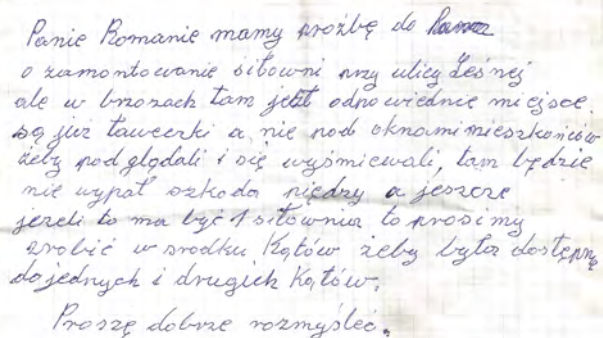 Panie Romanie mamy proźbę do
o zamontowanie siłowni przy ulicy Leśnej
ale w brzozach tam jest odpowiednie miejsce.
są już ławeczki a nie pod oknami mieszkańców
żeby podglądali i się wyśmiewali, tam będzie
nie wypał szkoda piędzy a jeszcze
jeżeli to ma być 1 siłownia to prosimy
zrobić w środku Kątów żeby była dostępną
do jednych i drugich Kątów.
Proszę dobrze rozmyśleć.